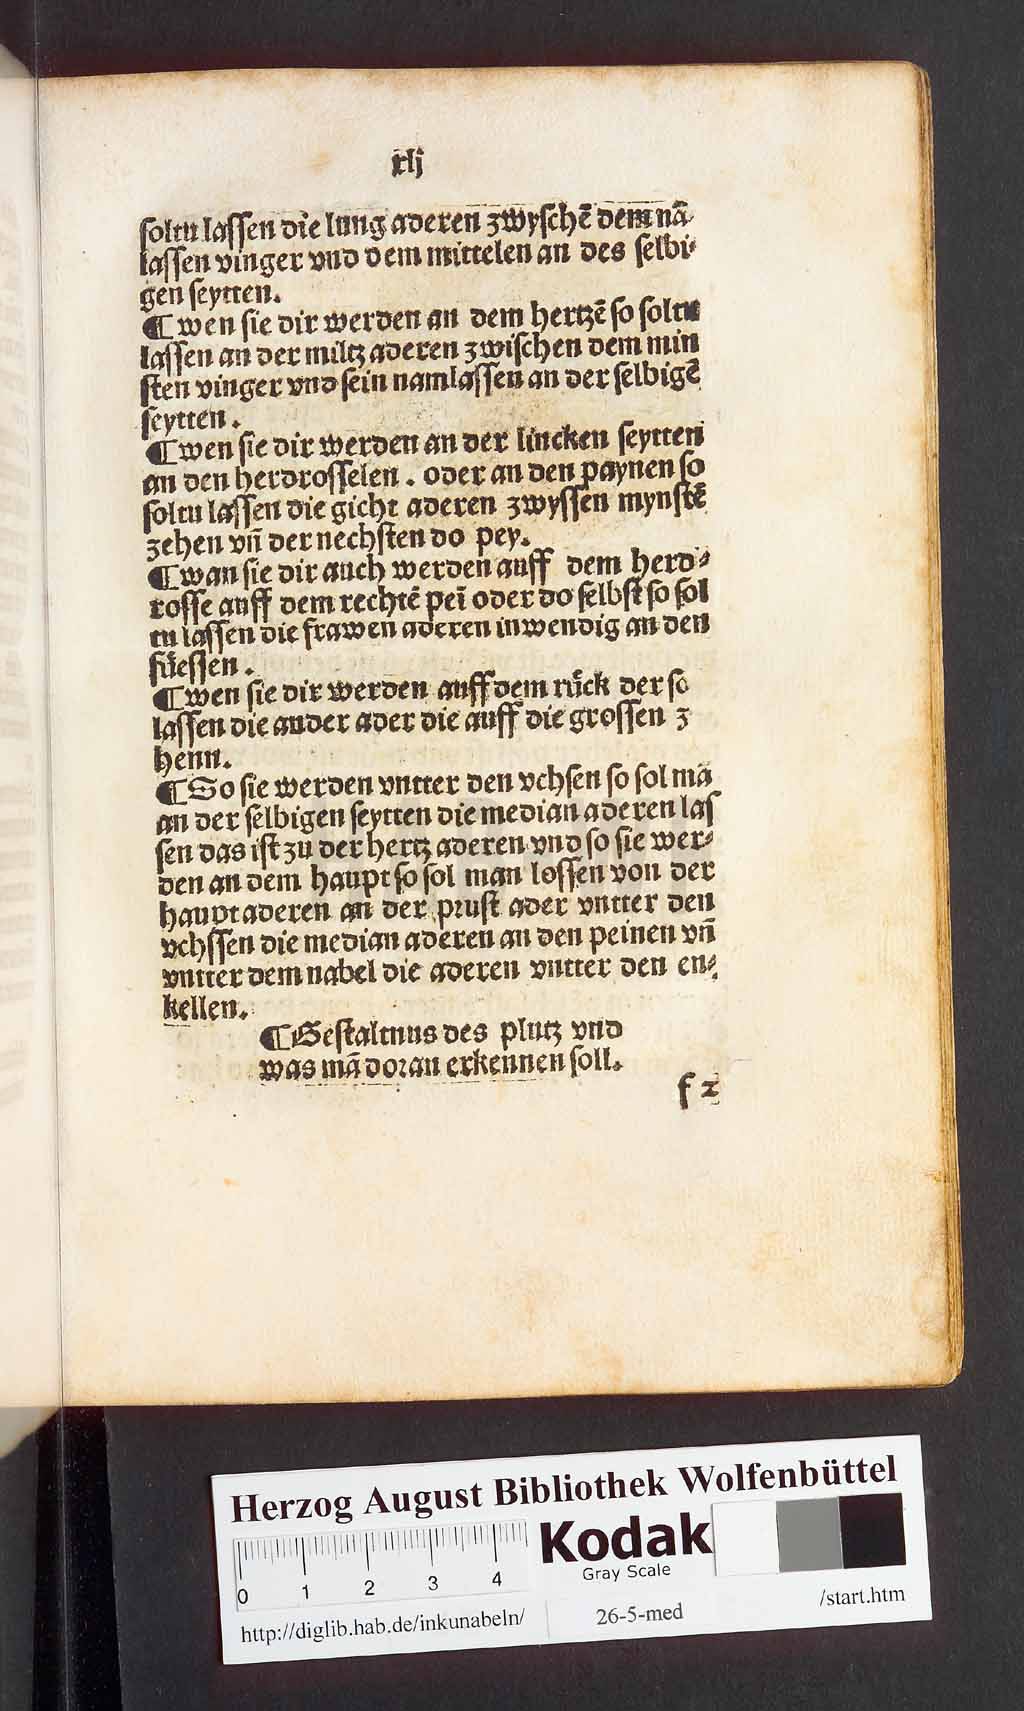 xlj
soltu lassen die lung aderen zwyschē dem nā-
lassen vinger vnd dem mittelen an des selbi-
gen seytten.
¶ wen sie dir werden an dem hertzē so soltu
lassen an der miltz aderen zwischen dem min
sten vinger vnd sein namlassen an der selbigē
seytten.
¶ wen sie dir werden an der lincken seytten
an den herdrosselen. oder an den paynen so
soltu lassen die gicht aderen zwyssen mynstē
zehen vn̄ der nechsten do pey.
¶ wan sie dir auch werden auff dem herd-
rosse auff dem rechtē peī oder do selbst so sol
tu lassen die frawen aderen inwendig an den
fuͤessen.
¶ wen sie dir werden auff dem ruͤck der so
lassen die ander ader die auff die grossen z
henn.
¶ So sie werden vntter den vchsen so sol mā
an der selbigen seytten die median aderen las
sen das ist zu der hertz aderen vnd so sie wer-
den an dem haupt so sol man lossen von der
haupt aderen an der prust ader vntter den
vchssen die median aderen an den peinen vn̄
vntter dem nabel die aderen vntter den en-
kellen.
¶ Gestaltnus des plutz vnd
was mā doran erkennen soll.
f 2
Herzog August Bibliothek Wolfenbüttel
0 1 2 3 4
Kodak
Gray Scale
http://diglib.hab.de/inkunabeln/
26-5-med
/start.htm